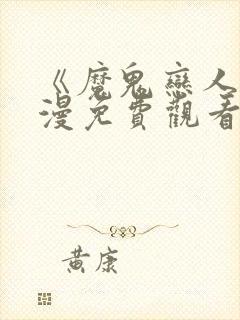 《魔鬼戀人
漫免費觀看
黃康